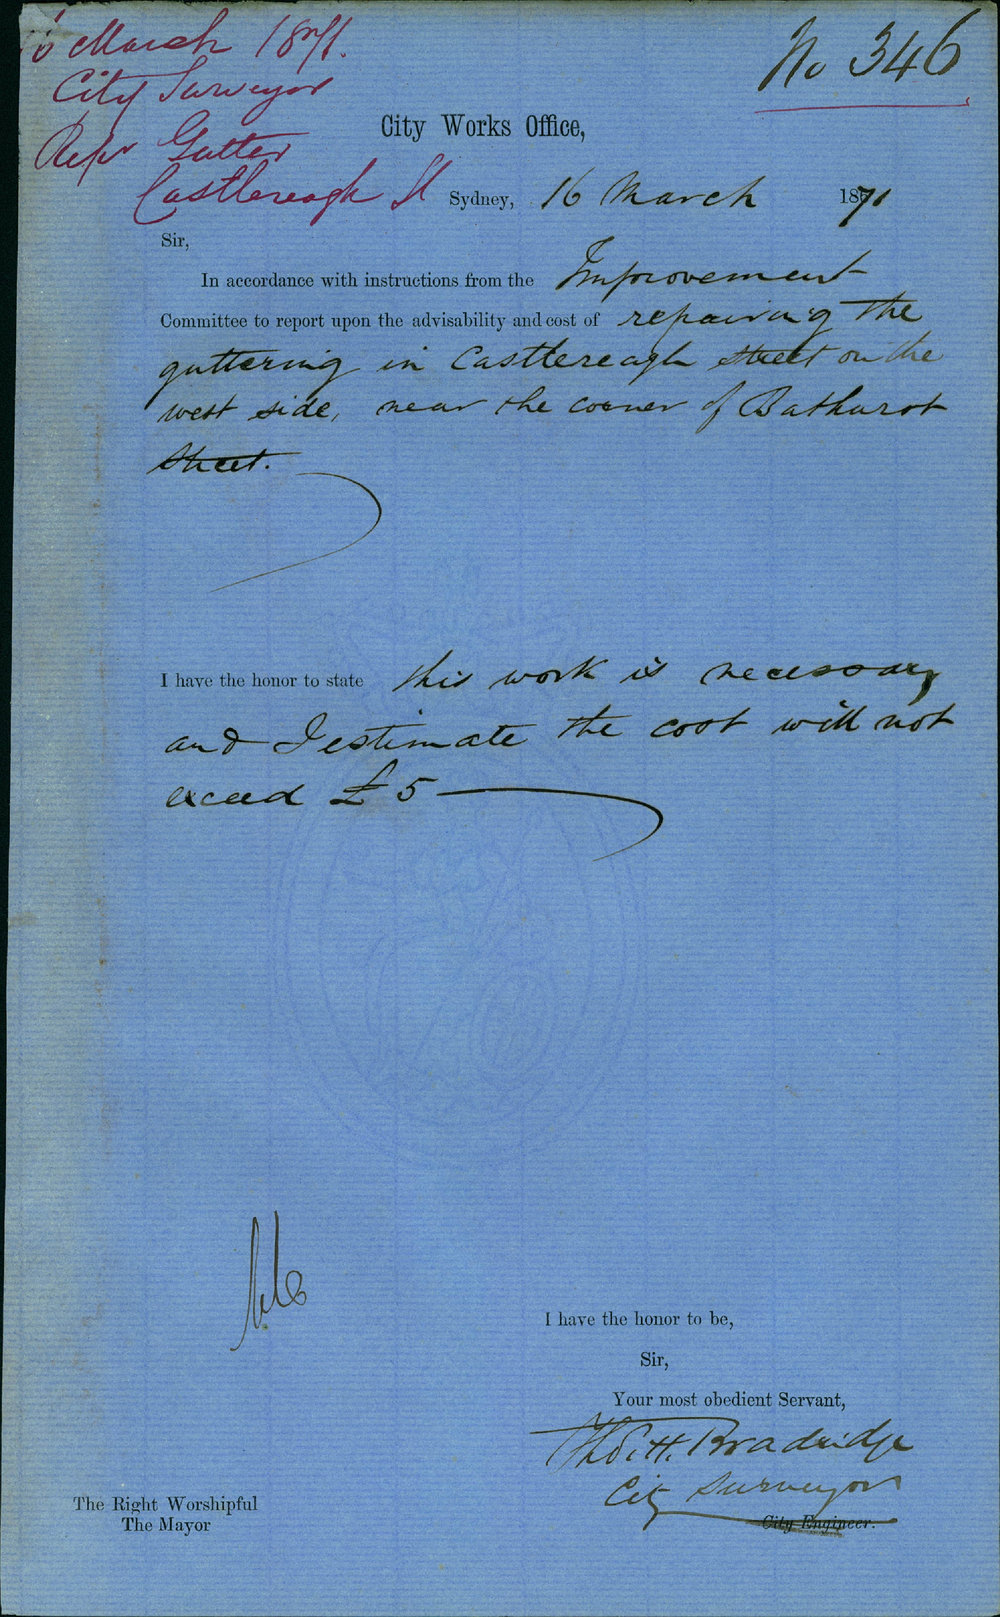 16 March 1871.
City Surveyor
Repr Gutter
Castlereagh St
No 346
City Works Office,
Sydney, 16 March 1871
Sir,
In accordance with instructions from the Improvement
Committee to report upon the advisability and cost of repairing the
guttering in Castlereagh street on the
west side, near the corner of Bathurst
Street.
I have the honor to state this work is necessary
and I estimate the cost will not
exceed £5
I have the honor to be,
Sir,
Your most obedient Servant,
Thos. H. Bradridge
City Surveyor
City Engineer.
The Right Worshipful
The Mayor